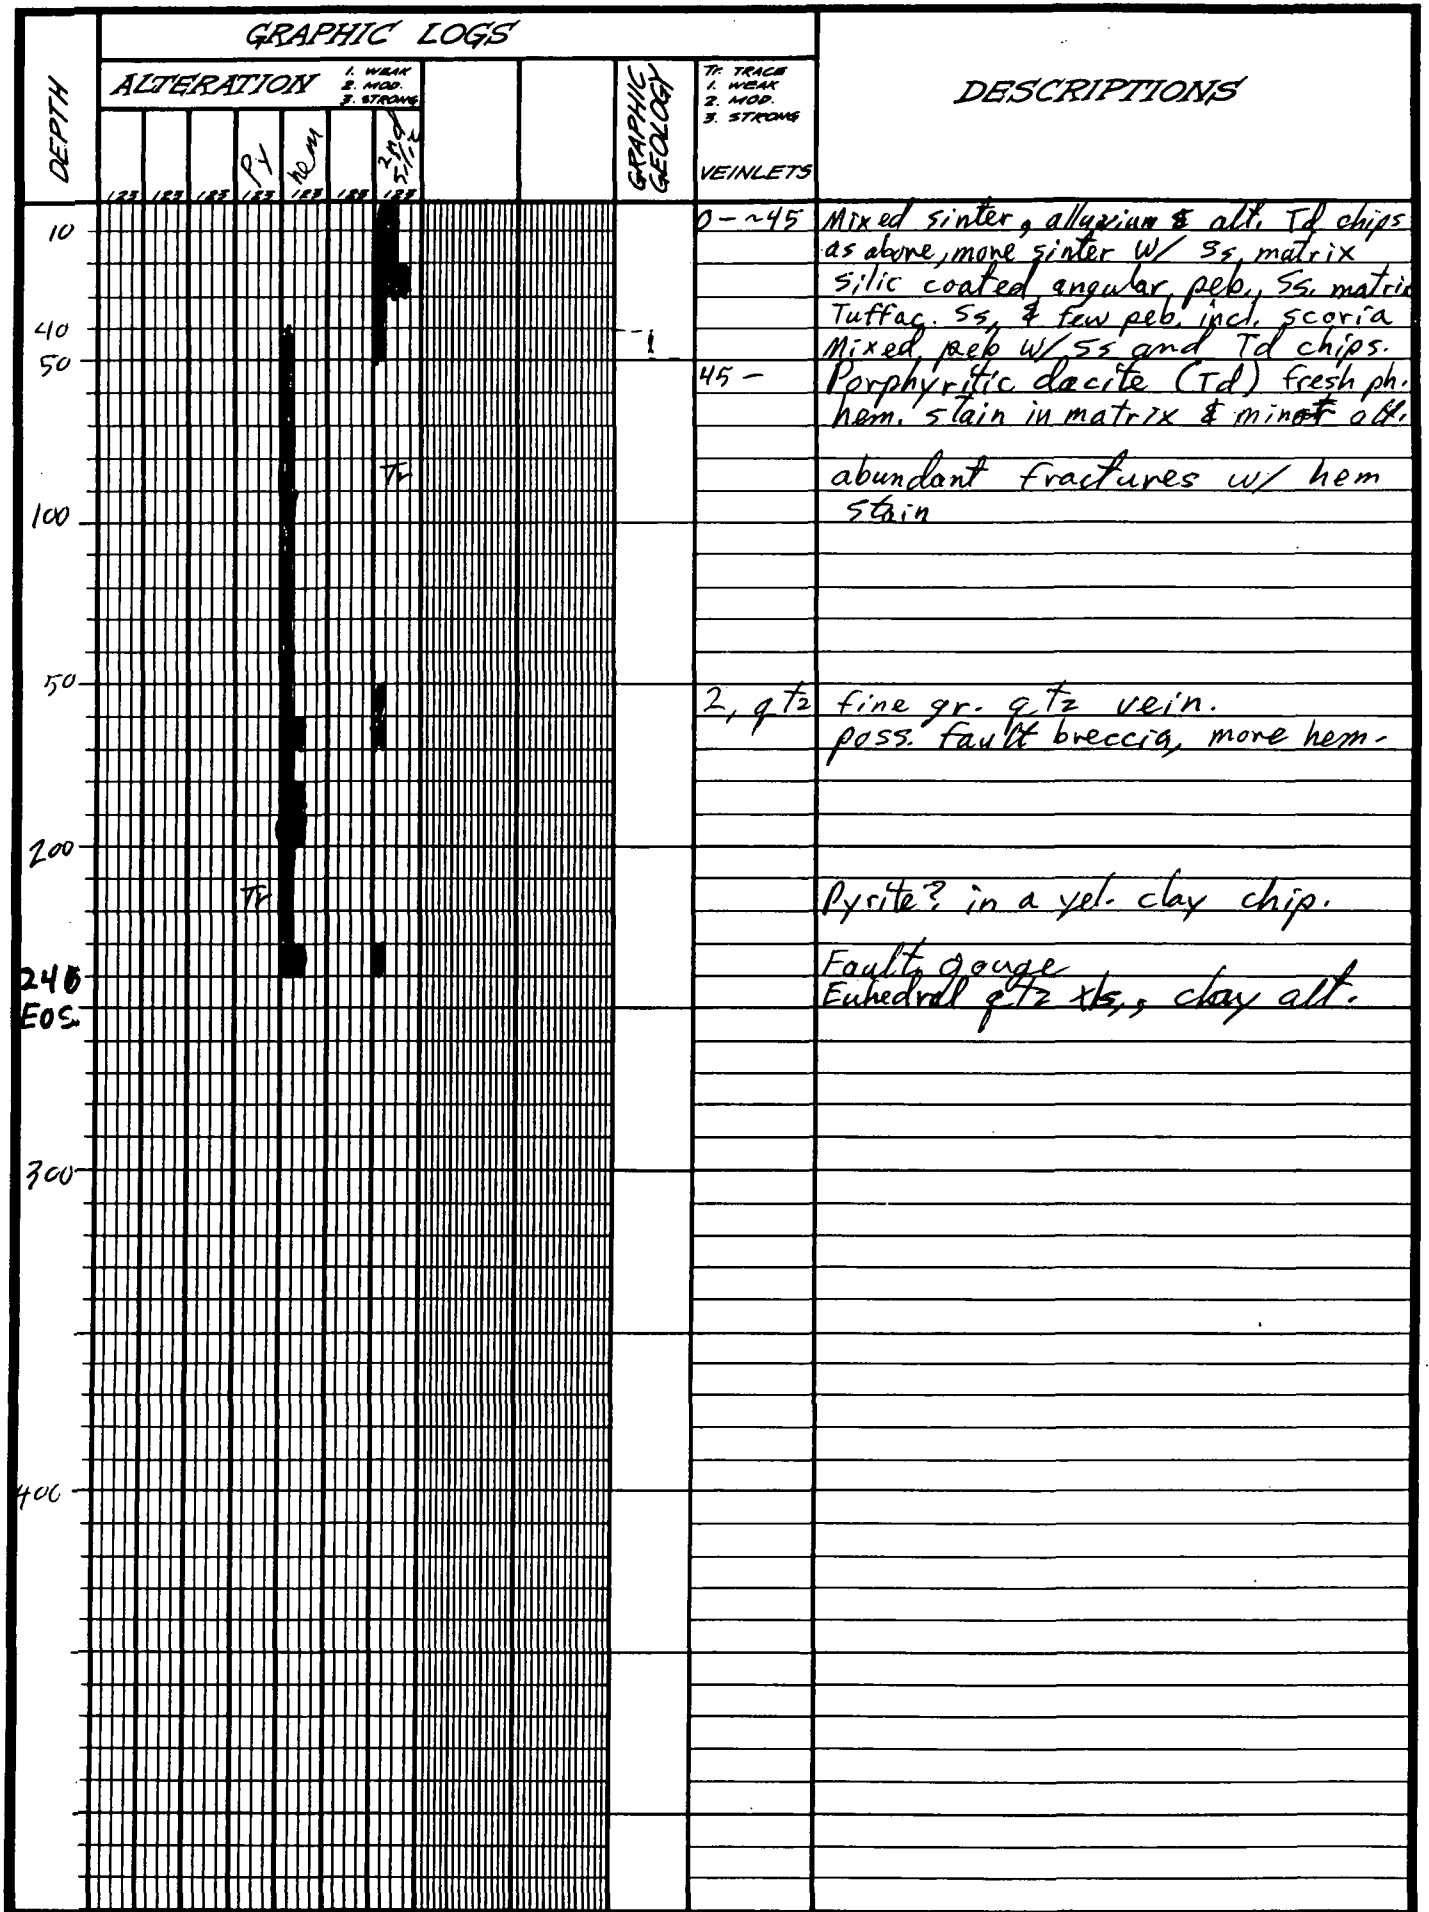 GRAPHIC LOGS
DEPTH
ALTERATION
1. WEAK
2. MOD.
3. STRONG
GRAPHIC GEOLOGY
Tr. TRACE
1. WEAK
2. MOD.
3. STRONG
VEINLETS
DESCRIPTIONS
Py
hem
2nd silic
123 123 123 123 123 123 123
10
0-~45
Mixed sinter, alluvium & alt. Td chips
as above, more sinter w/ ss, matrix
silic coated angular peb., Ss. matrix
40
Tuffac. Ss, & few peb. incl. scoria
50
Mixed peb w/ ss and Td chips.
45 -
Porphyritic dacite (Td) fresh ph.
hem. stain in matrix & minor alt.
Tr
abundant fractures w/ hem
100
stain
50
2, qtz
fine gr. qtz vein.
poss. fault breccia, more hem.
200
Tr
Pyrite? in a yel. clay chip.
Fault gouge
Euhedral qtz xls, clay alt.
300
400